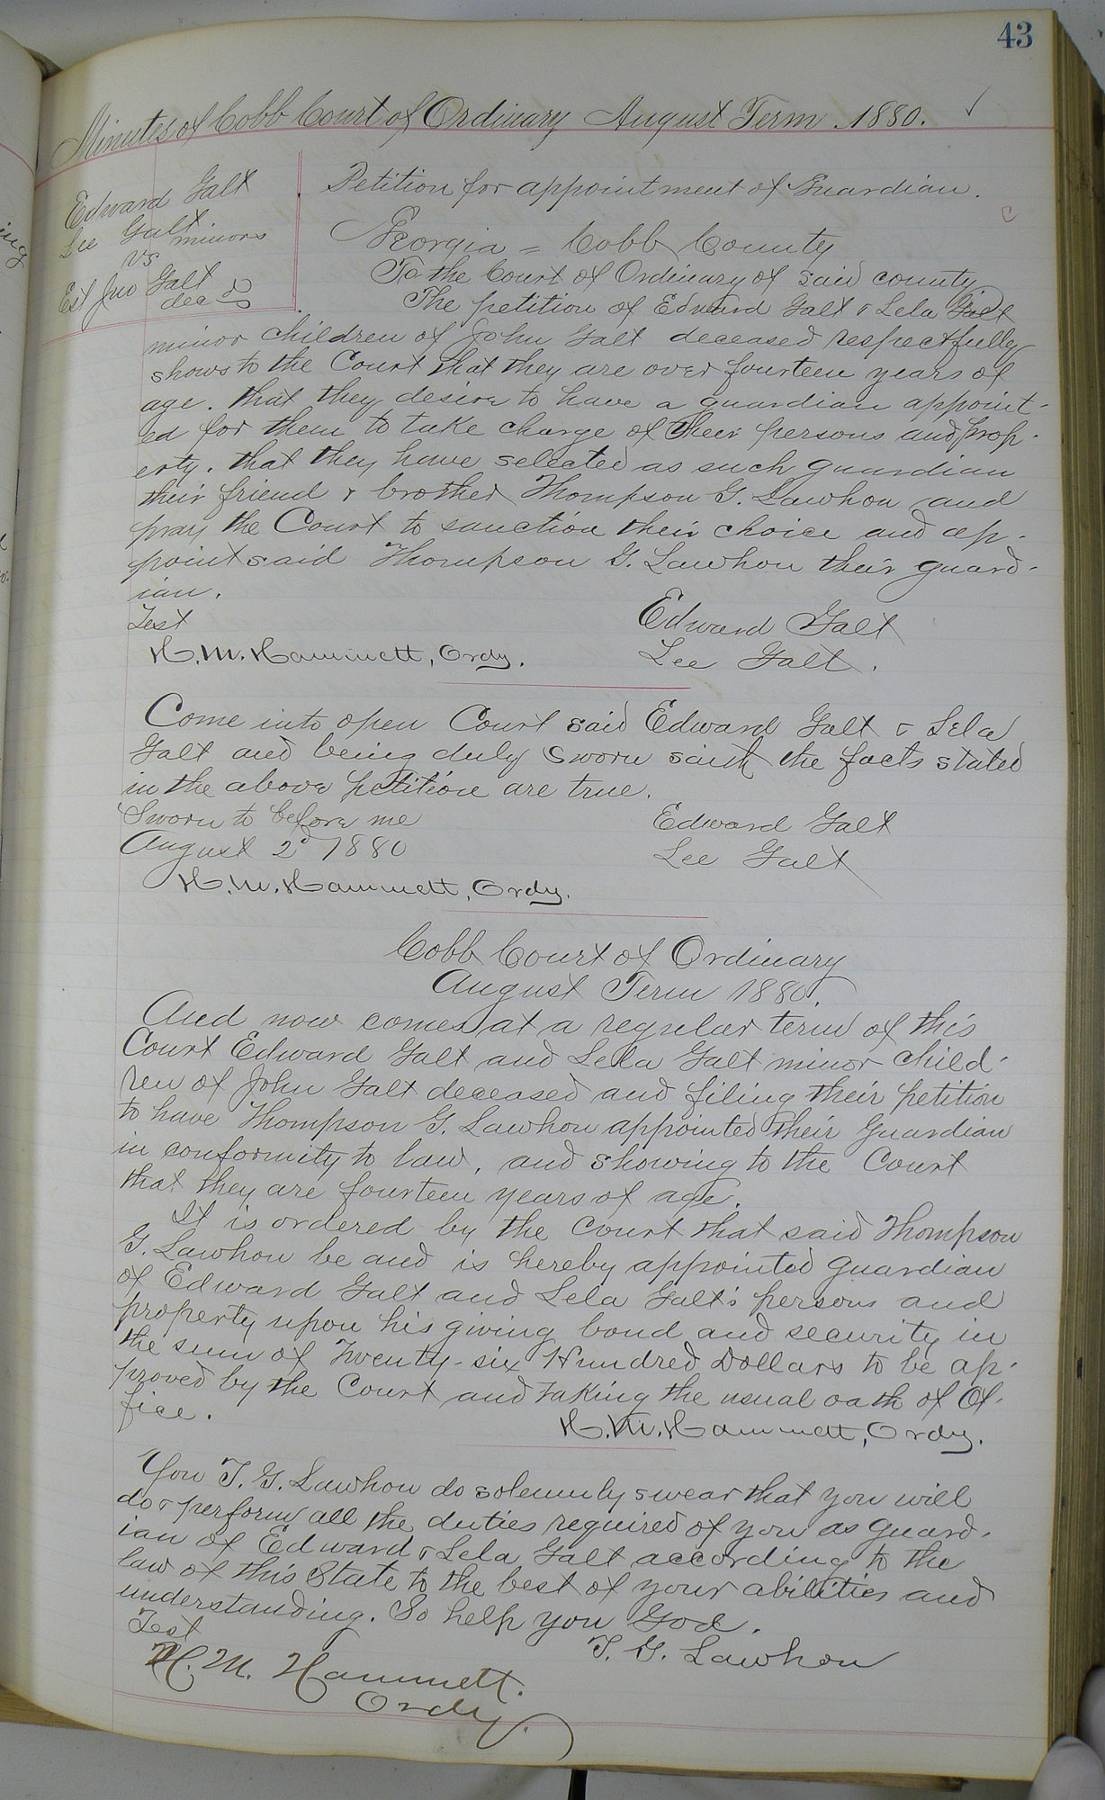 43
Minutes of Cobb Court of Ordinary August Term. 1880.
Edward Galt
Lee Galt minors
vs
Est Jno Galt
dec'd
Petition for appointment of Guardian.
Georgia = Cobb County
To the Court of Ordinary of said county
The petition of Edward Galt & Lela Galt
minor children of John Galt deceased respectfully
shows to the Court that they are over fourteen years of
age. that they desire to have a guardian appoint-
ed for them to take charge of their persons and prop-
erty. that they have selected as such guardian
their friend & brother Thompson G. Lawhon and
pray the Court to sanction their choice and ap-
point said Thompson G. Lawhon their guard-
ian.
Test
Edward Galt
H. M. Hammett, Ordy.
Lee Galt.
Come into open Court said Edward Galt & Lela
Galt and being duly sworn saith the facts stated
in the above petition are true.
Sworn to before me
Edward Galt
August 2d 1880
Lee Galt
H. M. Hammett, Ordy.
Cobb Court of Ordinary
August Term 1880.
And now comes at a regular term of this
Court Edward Galt and Lela Galt minor child-
ren of John Galt deceased and filing their petition
to have Thompson G. Lawhon appointed their Guardian
in conformity to law, and showing to the Court
that they are fourteen years of age.
It is ordered by the Court that said Thompson
G. Lawhon be and is hereby appointed guardian
of Edward Galt and Lela Galt's persons and
property upon his giving bond and security in
the sum of Twenty-six Hundred Dollars to be ap-
proved by the Court and taking the usual oath of of-
fice.
H. M. Hammett, Ordy.
You T. G. Lawhon do solemnly swear that you will
do & perform all the duties required of you as guard-
ian of Edward & Lela Galt according to the
law of this State to the best of your abilities and
understanding. So help you God.
Test
T. G. Lawhon
H. M. Hammett.
Ordy.